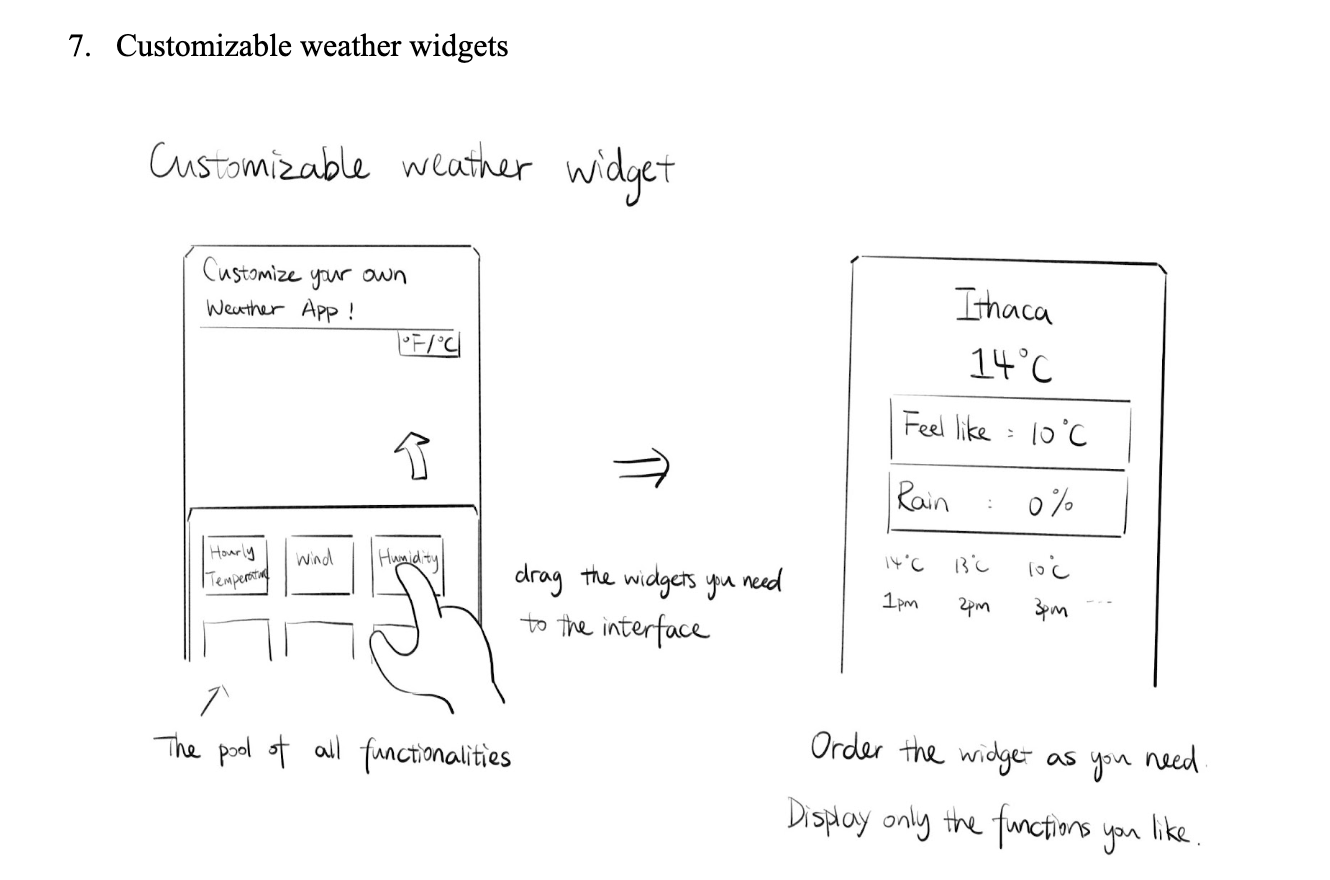 7. Customizable weather widgets
Customizable weather widget
Customize your own
Weather App!
°F/°C
Hourly
Temperature
Wind
Humidity
The pool of all functionalities
drag the widgets you need
to the interface
Ithaca
14°C
Feel like : 10°C
Rain : 0%
14°C 13°C 10°C
1pm 2pm 3pm ---
Order the widget as you need.
Display only the functions you like.